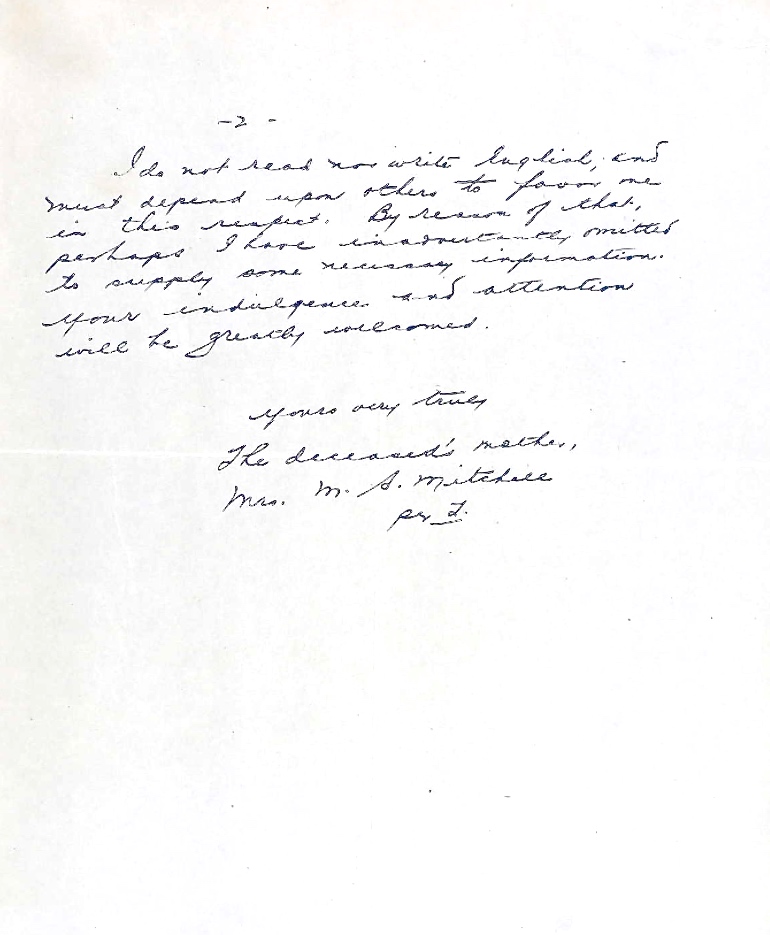 -2-
I do not read nor write English, and
must depend upon others to favor me
in this respect. By reason of that,
perhaps I have inadvertantly omitted
to supply some necessary information.
Your indulgence and attention
will be greatly welcomed.
Yours very truly
The deceased's mother,
Mrs. M. S. Mitchell
per F.